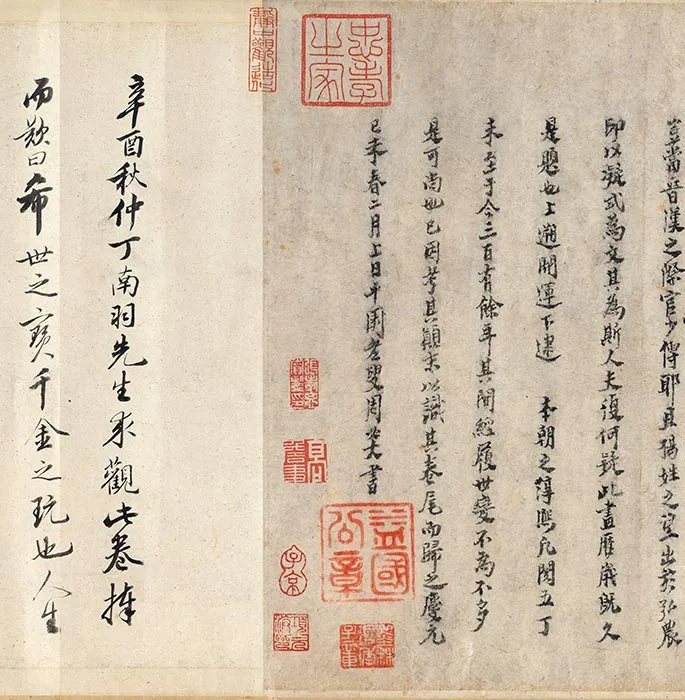 豈當晉漢之際官少傅耶且楊姓之望出於弘農
即以凝式為文其為斯人夫復何疑此畫歷歲既久
是題也上遡開運下逮 本朝之淳熙凡閱五丁
未至于今三百有餘年其間經履世變不為不多
是可尚也已因考其顛末以識其卷尾而歸之慶元
己未春二月上日平園老叟周必大書
忠孝之家
益國公章
子京
辛酉秋仲丁南羽先生來觀此卷捧
而歎曰希世之寶千金之玩也人生